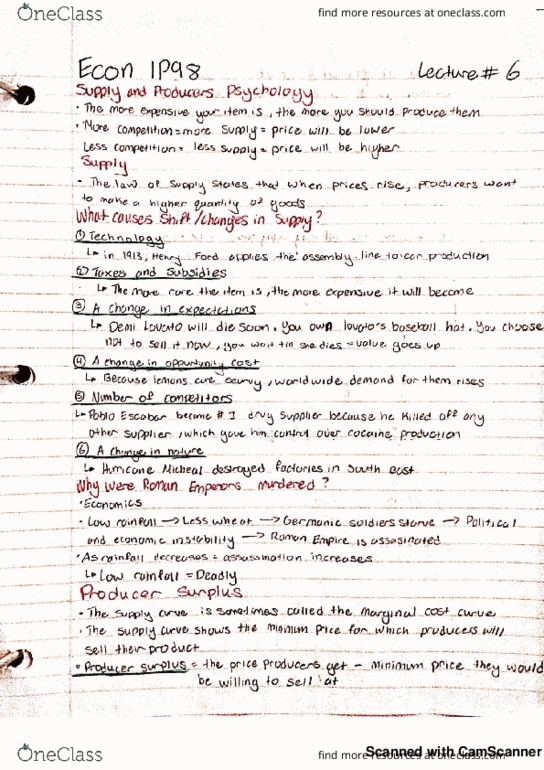 OneClass
find more resources at oneclass.com
Econ 1P98
Lecture # 6
Supply and Producers Psychology
• The more expensive your item is, the more you should produce them
• More competition = more supply = price will be lower
Less competition = less supply = price will be higher
Supply
- The law of supply states that when prices rise, producers want
to make a higher quantity of goods
What causes Shift/changes in Supply?
① Technology
↳ in 1913, Henry Ford applies the assembly line to car production
② Taxes and Subsidies
↳ The more rare the item is, the more expensive it will become
③ A change in expectations
↳ Demi Lovato will die soon. You own lovato's baseball hat. You choose
not to sell it now, you wait till she dies = value goes up
④ A change in oppurtunity cost
↳ Because lemons cure scurvy, worldwide demand for them rises
⑤ Number of competitors
↳ Pablo Escobar became # 1 drug supplier because he killed off any
other supplier, which gave him control over cocaine production
⑥ A change in nature
↳ Hurricane Micheal destroyed factories in South East
Why were Roman Emperors murdered?
• Economics
• Low rainfall → Less wheat → Germanic soldiers starve → Political
and economic instability → Roman Empire is assasinated
• As rainfall decreases = assassination increases
↳ Low rainfall = Deadly
Producer Surplus
• The supply curve is sometimes called the marginal cost curve
• The supply curve shows the minimum price for which producers will
sell their product
• Producer surplus = the price producers get - minimum price they would
be willing to sell at
OneClass
find more resources at oneclass.com
Scanned with CamScanner